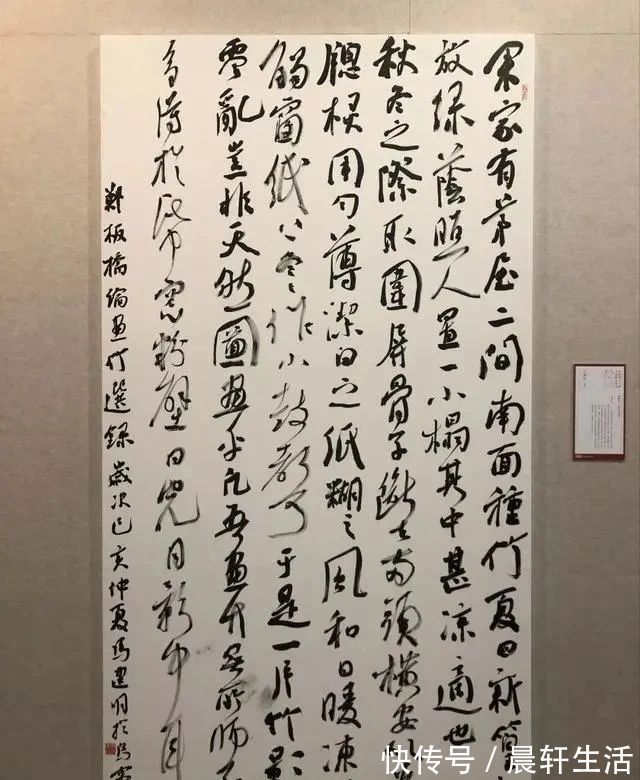 余家有茅屋二间南面種竹夏日新篁
放绿蔭照人置一小榻其中甚凉適也
秋冬之際取圍屏骨子斷去两頭横安
牕棂用匀薄潔白之纸糊之風和日暖凍
觸窗纸上冬冬作小鼓于是一片竹影
零亂豈非天然圖畫乎凡吾畫竹無所師
多得於紙窗粉壁日光月影中耳
鄭板橋論畫竹選録歲次己亥仲夏馬建明於
快传号/晨轩生活